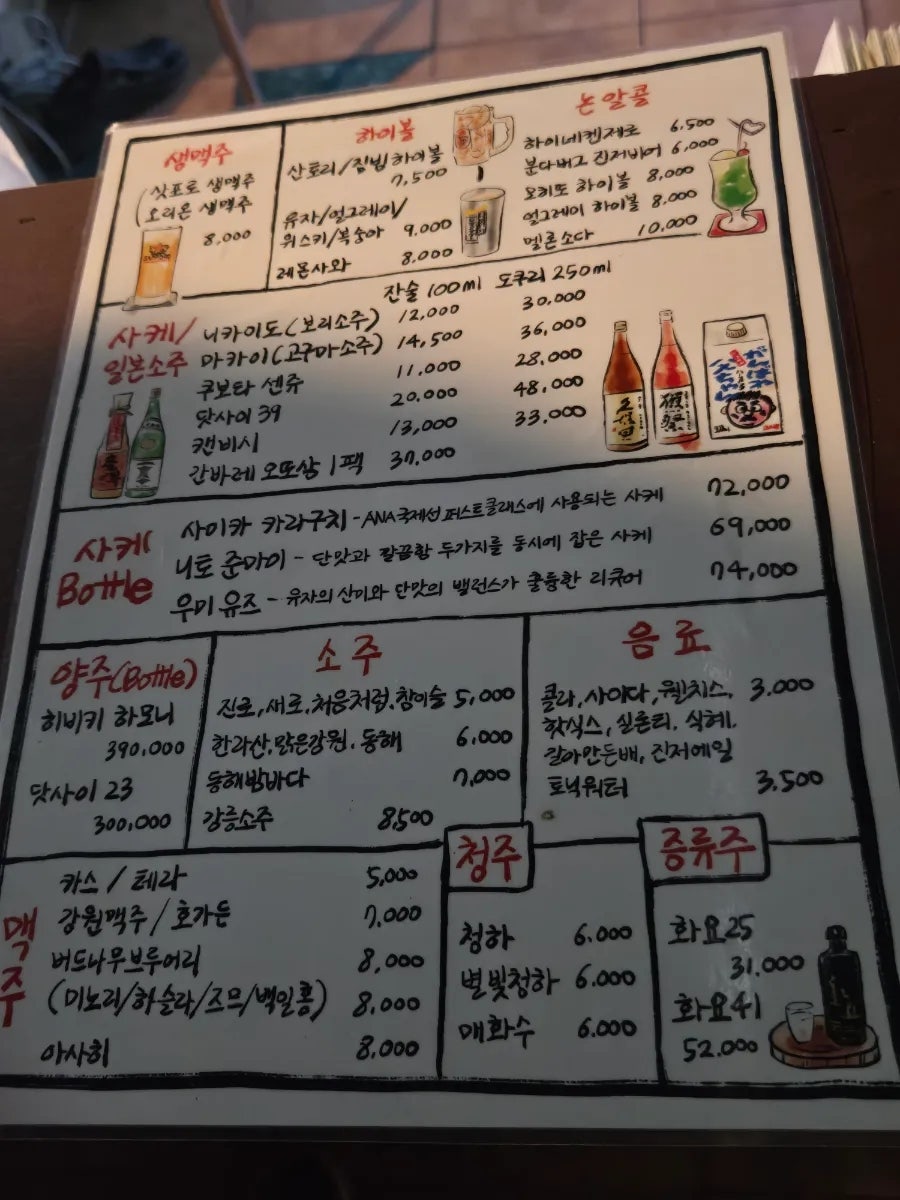 생맥주
삿포로 생맥주
오리온 생맥주
8,000
하이볼
산토리/짐빔 하이볼
7,500
유자/얼그레이/
위스키/복숭아 9,000
레몬사와 8,000
논알콜
하이네켄제로 6,500
분다버그 진저비어 6,000
모히또 하이볼 8,000
얼그레이 하이볼 8,000
멜론소다 10,000
사케/
일본소주
잔술 100ml 도쿠리 250ml
니카이도(보리소주) 12,000 30,000
마카이(고구마소주) 14,500 36,000
쿠보타 센쥬 11,000 28,000
닷사이 39 20,000 48,000
캔비시 13,000 33,000
간바레 오또상 1팩 37,000
久保田
獺祭
사케
Bottle
사이카 카라구치 - ANA국제선 퍼스트클래스에 사용되는 사케 72,000
니토 준마이 - 단맛과 깔끔함 두가지를 동시에 잡은 사케 69,000
우미 유즈 - 유자의 산미와 단맛의 밸런스가 훌륭한 리큐어 74,000
양주(Bottle)
히비키 하모니
390,000
닷사이 23
300,000
소주
진로,새로,처음처럼,참이슬 5,000
한라산,맑은강원,동해 6,000
동해밤바다 7,000
강릉소주 8,500
음료
콜라,사이다,웰치스, 3.000
핫식스,실론티,식혜,
갈아만든배,진저에일
토닉워터 3.500
맥주
카스 / 테라 5,000
강원맥주 / 호가든 7,000
버드나무브루어리 8,000
(미노리/하슬라/즈므/백일홍) 8,000
아사히 8,000
청주
청하 6.000
별빛청하 6.000
매화수 6.000
증류주
화요25
31.000
화요41
52.000